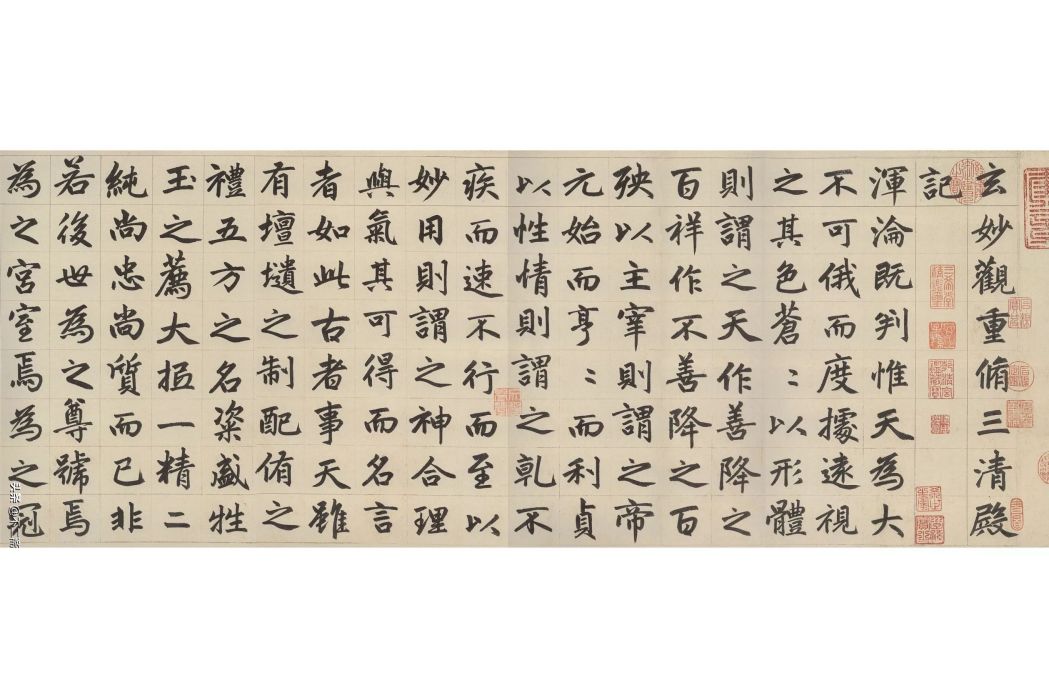 玄妙觀重脩三清殿
記
渾淪既判惟天為大
不可俄而度據遠視
之其色蒼〻以形體
則謂之天作善降之
百祥作不善降之百
殃以主宰則謂之帝
元始而亨〻而利貞
以性情則謂之乹不
疾而速不行而至以
妙用則謂之神合理
與氣其可得而名言
者如此古者事天雖
有壇壝之制配侑之
禮五方之名粢盛牲
玉之薦大抵一精二
純尚忠尚質而已非
若後世為之尊號焉
為之宮室焉為之冠